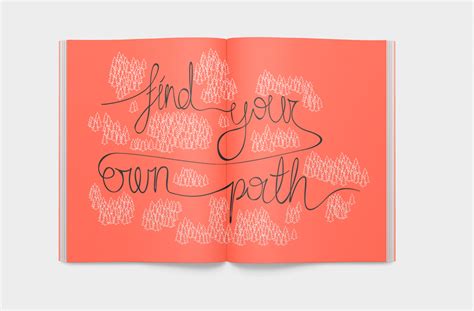 find your
own path